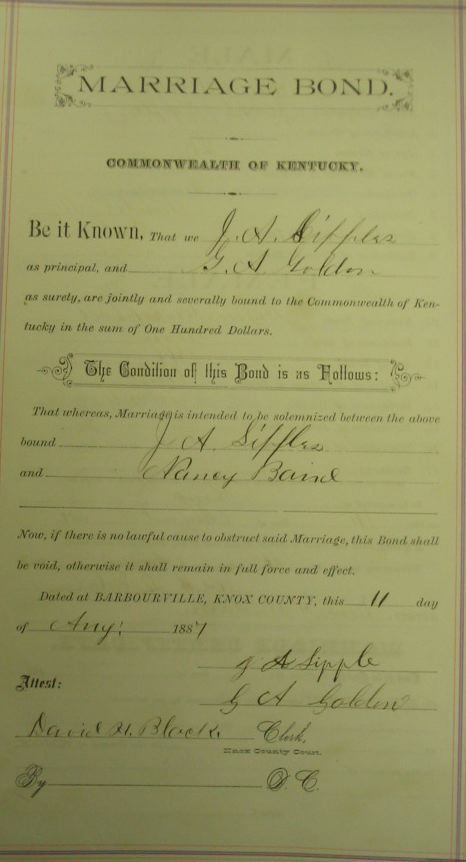 MARRIAGE BOND.
COMMONWEALTH OF KENTUCKY.
Be it Known, That we J. A. Sipples
as principal, and G. A Goldon
as surety, are jointly and severally bound to the Commonwealth of Ken-
tucky in the sum of One Hundred Dollars.
The Condition of this Bond is as Follows:
That whereas, Marriage is intended to be solemnized between the above
bound J A. Sipples
and Nancy
Now, if there is no lawful cause to obstruct said Marriage, this Bond shall
be void, otherwise it shall remain in full force and effect.
Dated at BARBOURVILLE, KNOX COUNTY, this 11 day
of Aug; 1887
J A Sipple
Attest:
G A Golden
David H. Black. Clerk,
Knox County Court.
By D. C.